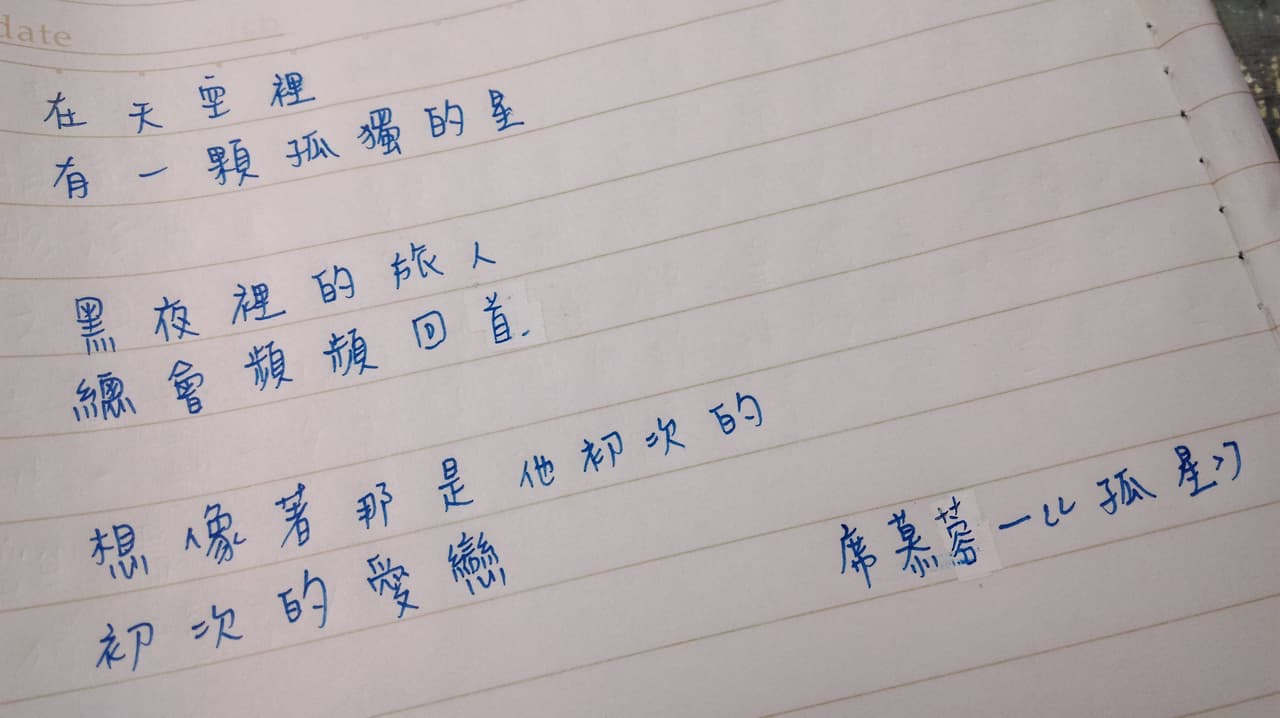 date
在天空裡
有一顆孤獨的星
黑夜裡的旅人
總會頻頻回首.
想像著那是他初次的
初次的愛戀
席慕蓉 — “孤星”